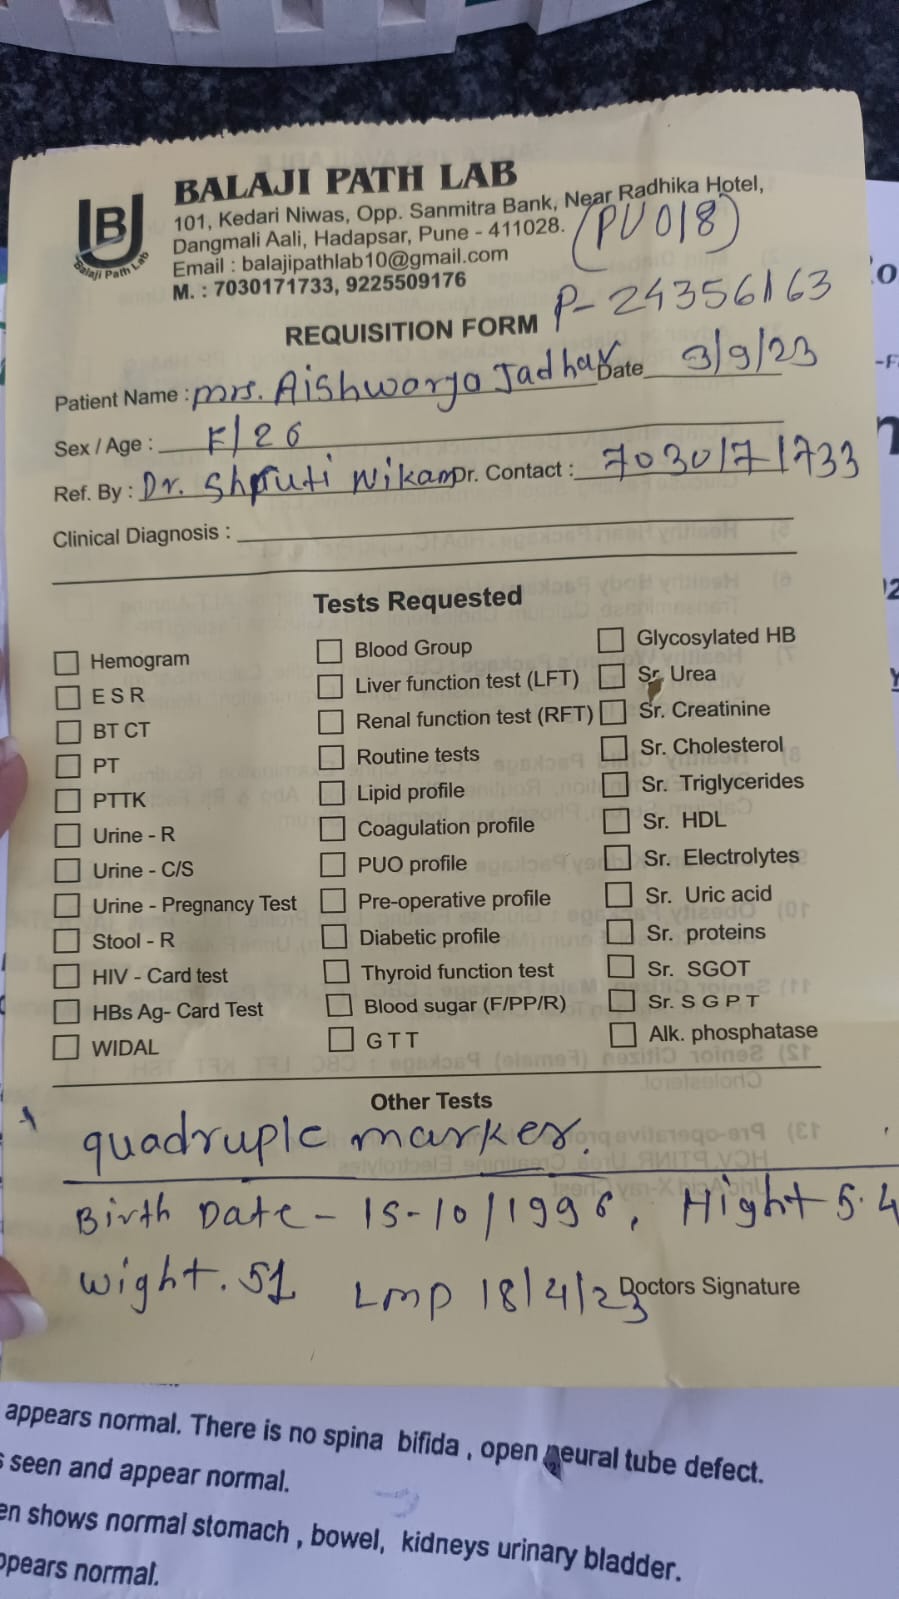 BJ
Balaji Path Lab
BALAJI PATH LAB
101, Kedari Niwas, Opp. Sanmitra Bank, Near Radhika Hotel,
Dangmali Aali, Hadapsar, Pune - 411028.
(PU018)
Email : balajipathlab10@gmail.com
M. : 7030171733, 9225509176
P-24356163
REQUISITION FORM
Patient Name : mrs. Aishwarya Jadhav Date 3/9/23
Sex / Age : F/26
Ref. By : Dr. Shruti Nikam Dr. Contact : 7030171733
Clinical Diagnosis :
Tests Requested
Hemogram Blood Group Glycosylated HB
E S R Liver function test (LFT) Sr. Urea
BT CT Renal function test (RFT) Sr. Creatinine
PT Routine tests Sr. Cholesterol
PTTK Lipid profile Sr. Triglycerides
Urine - R Coagulation profile Sr. HDL
Urine - C/S PUO profile Sr. Electrolytes
Urine - Pregnancy Test Pre-operative profile Sr. Uric acid
Stool - R Diabetic profile Sr. proteins
HIV - Card test Thyroid function test Sr. SGOT
HBs Ag- Card Test Blood sugar (F/PP/R) Sr. S G P T
WIDAL G T T Alk. phosphatase
Other Tests
quadruple marker.
Birth Date - 15-10/1996, Hight 5.4
wight. 51 LMP 18/4/23 Doctors Signature
appears normal. There is no spina bifida , open neural tube defect.
seen and appear normal.
shows normal stomach , bowel, kidneys urinary bladder.
normal.